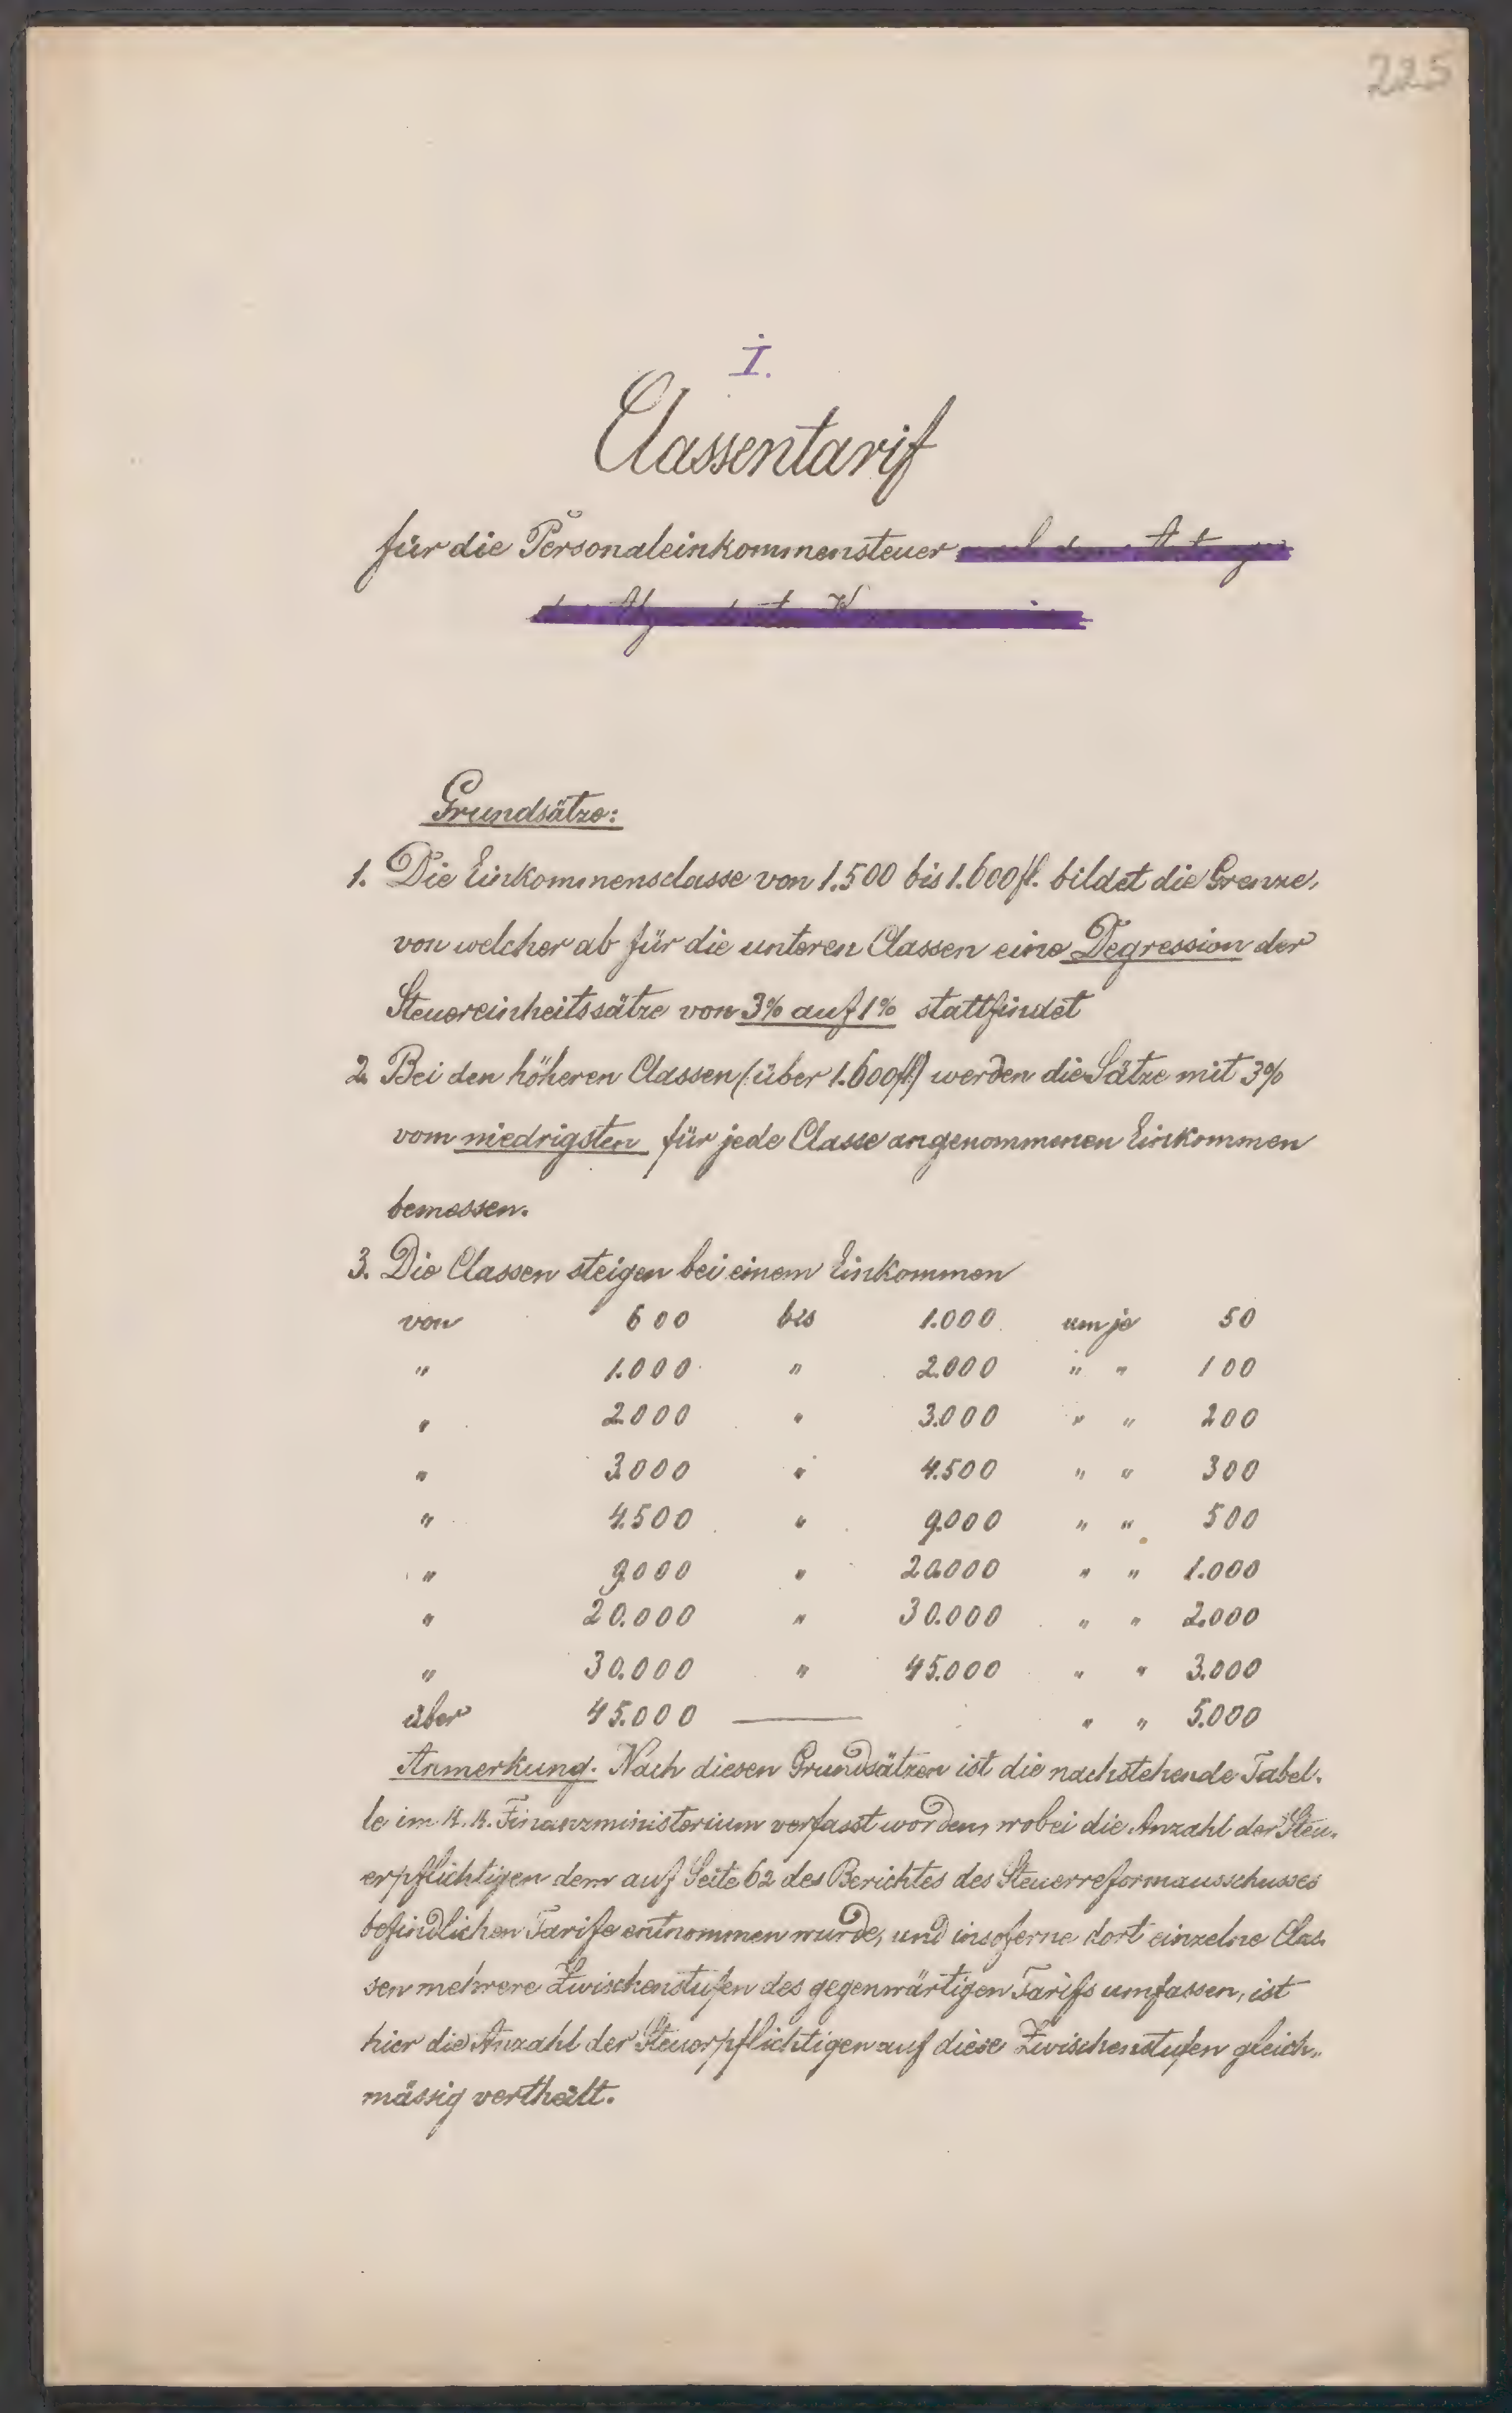 225
I.
Classentarif
für die Personaleinkommensteuer
Grundsätze:
1. Die Einkommensclasse von 1.500 bis 1.600 fl. bildet die Grenze,
von welcher ab für die unteren Classen eine Degression der
Steuereinheitssätze von 3% auf 1% stattfindet
2. Bei den höheren Classen (über 1.600 fl) werden die Sätze mit 3%
vom niedrigsten für jede Classe angenommenen Einkommen
bemessen.
3. Die Classen steigen bei einem Einkommen
von 600 bis 1.000 um je 50
" 1.000 " 2.000 " " 100
" 2.000 " 3.000 " " 200
" 3.000 " 4.500 " " 300
" 4.500 " 9.000 " " 500
" 9.000 " 20.000 " " 1.000
" 20.000 " 30.000 " " 2.000
" 30.000 " 45.000 " " 3.000
über 45.000 — " " 5.000
Anmerkung. Nach diesen Grundsätzen ist die nachstehende Tabel-
le im k. k. Finanzministerium verfasst worden, wobei die Anzahl der Steu-
erpflichtigen dem auf Seite 62 des Berichtes des Steuerreformausschusses
befindlichen Tarife entnommen wurde, und insoferne dort einzelne Clas-
sen mehrere Zwischenstufen des gegenwärtigen Tarifs umfassen, ist
hier die Anzahl der Steuerpflichtigen auf diese Zwischenstufen gleich-
mässig vertheilt.